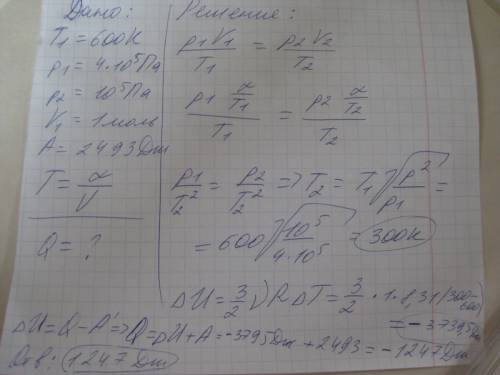 Дано:
T₁ = 600К
p₁ = 4·10⁵Па
p₂ = 10⁵Па
V₁ = 1моль
A = 2493Дж
T = α/V
Q = ?
Решение:
p₁V₁/T₁ = p₂V₂/T₂
p₁ α/T₁ / T₁ = p₂ α/T₂ / T₂
p₁/T₂² = p₂/T₂² => T₂ = T₁√(p²/p₁) =
= 600√(10⁵/4·10⁵) = 300К
ΔU = 3/2 νRΔT = 3/2 · 1·8,31(300-600)
= -37395Дж
ΔU = Q - A' => Q = ΔU + A = -3795Дж + 2493 = -1247Дж
Отв: 1247Дж